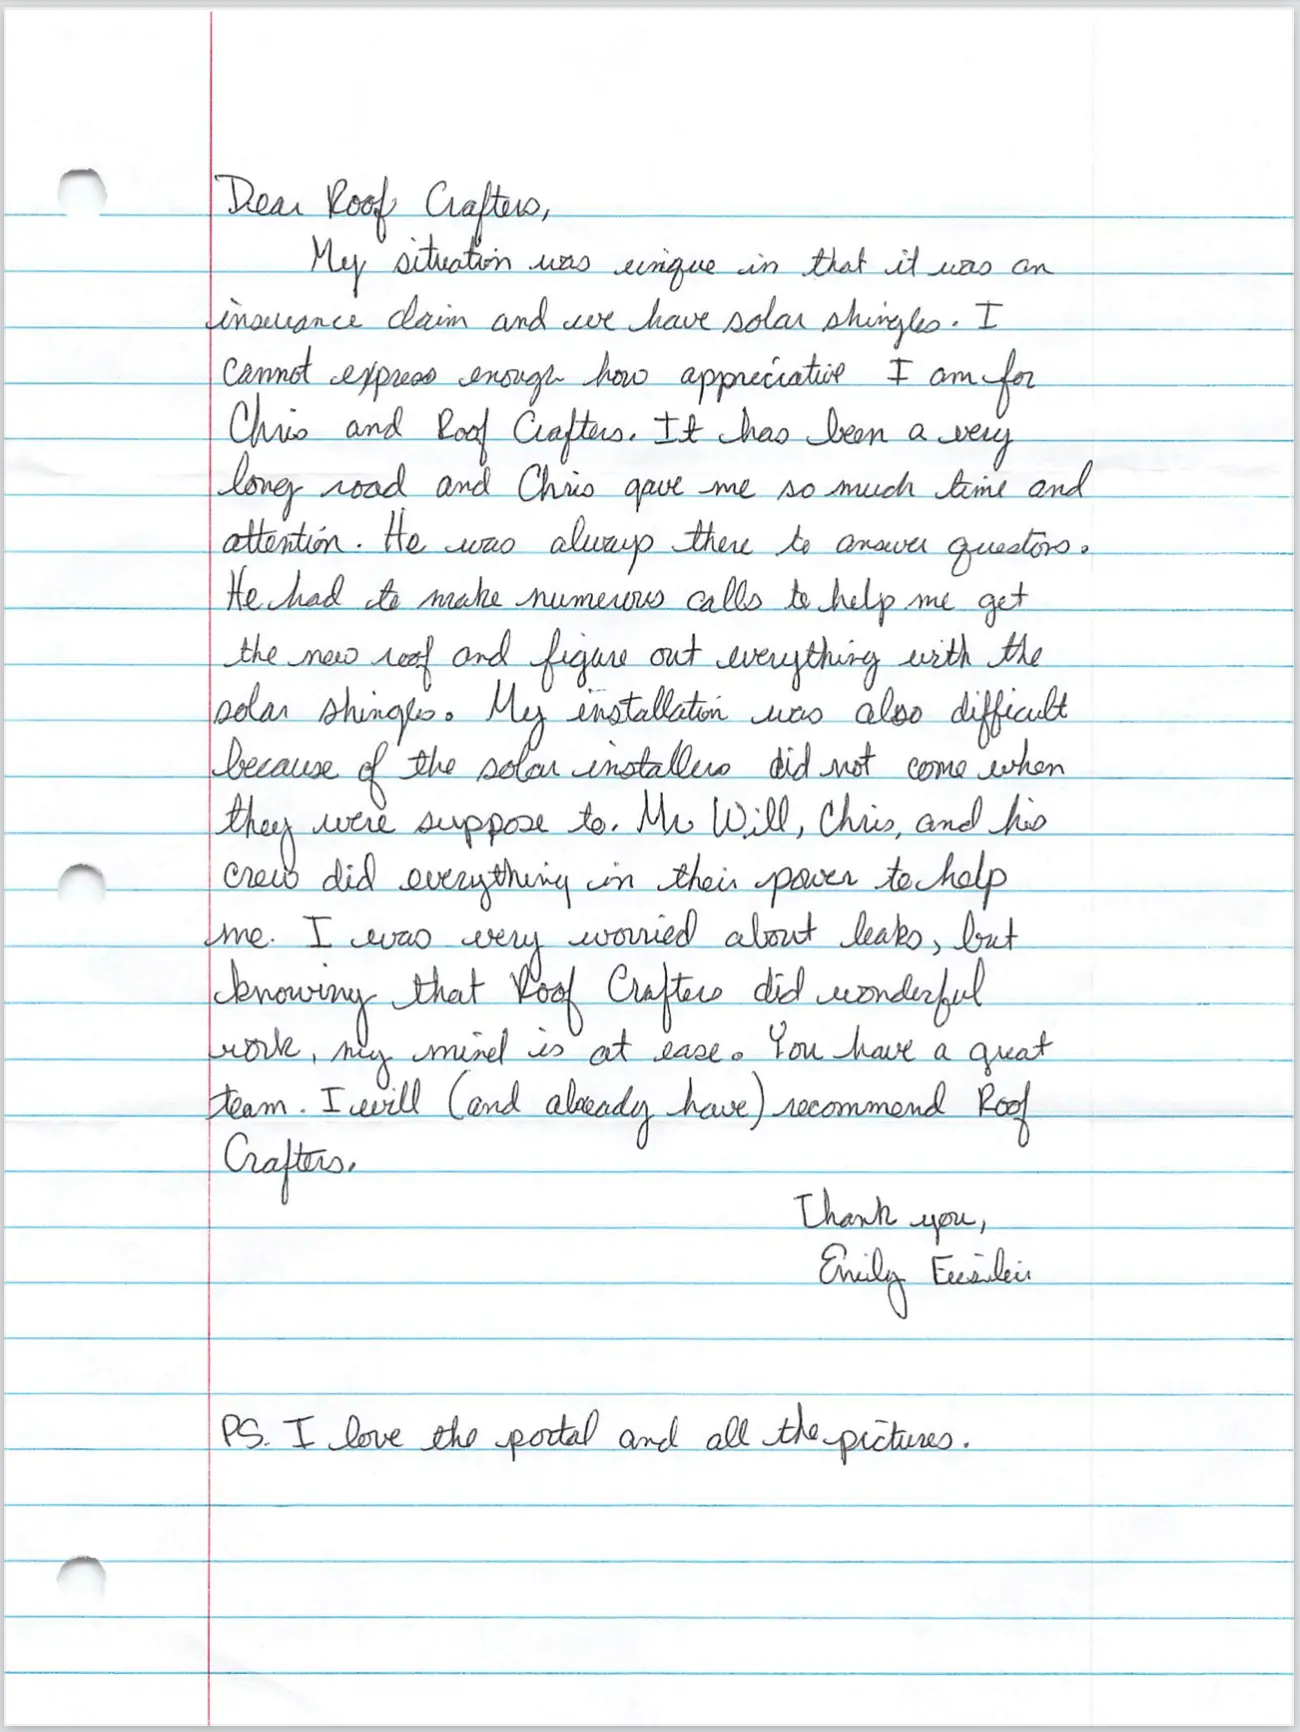 Dear Roof Crafters,
My situation was unique in that it was an
insurance claim and we have solar shingles. I
cannot express enough how appreciative I am for
Chris and Roof Crafters. It has been a very
long road and Chris gave me so much time and
attention. He was always there to answer questions.
He had to make numerous calls to help me get
the new roof and figure out everything with the
solar shingles. My installation was also difficult
because of the solar installers did not come when
they were suppose to. Mr Will, Chris, and his
crew did everything in their power to help
me. I was very worried about leaks, but
knowing that Roof Crafters did wonderful
work, my mind is at ease. You have a great
team. I will (and already have) recommend Roof
Crafters.
Thank you,
Emily
PS. I love the portal and all the pictures.